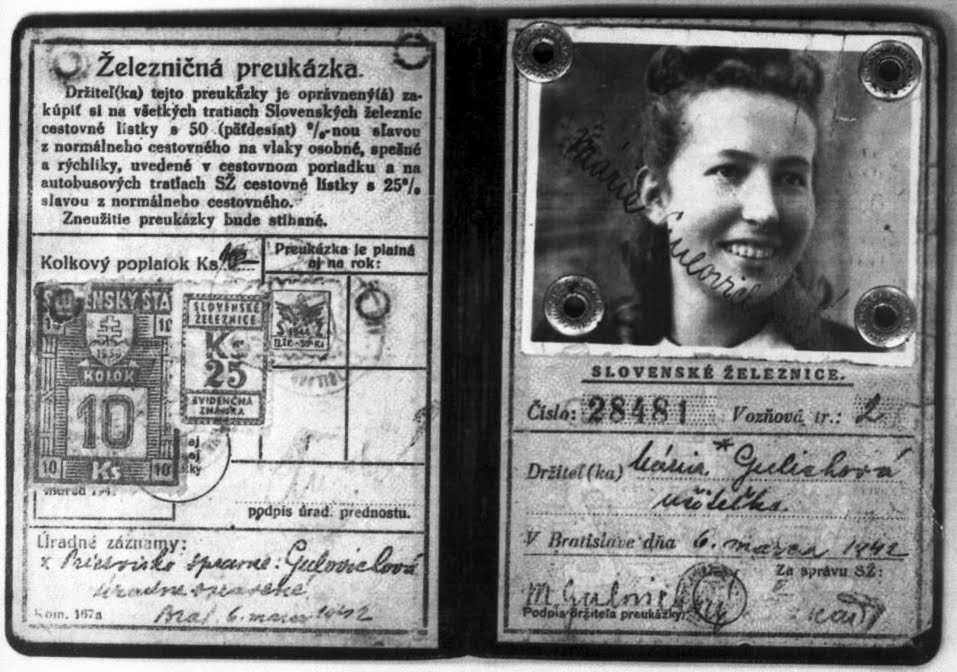 Železničná preukázka.
Držiteľ(ka) tejto preukázky je oprávnený(á) za-
kúpiť si na všetkých tratiach Slovenských železníc
cestovné lístky s 50 (päťdesiat) %-nou sľavou
z normálneho cestovného na vlaky osobné, spešné
a rýchliky, uvedené v cestovnom poriadku a na
autobusových tratiach SŽ cestovné lístky s 25%
slavou z normálneho cestovného.
Zneužitie preukázky bude stíhané.
Kolkový poplatok Ks
Preukázka je platná
aj na rok:
SLOVENSKÝ ŠTÁT
10 10
1939
KOLOK
10
10 Ks 10
SLOVENSKÉ
ŽELEZNICE
Ks
25
EVIDENČNÁ
ZNÁMKA
podpis úrad. prednostu.
Úradné záznamy:
Priezvisko správne: Gulovichová
úradne opravené.
Brat. 6. marca 1942
Kom. 167a
Mária Gulovich
SLOVENSKÉ ŽELEZNICE.
Číslo: 28481 Vozňová tr.: 2
Držiteľ(ka) Mária * Gulichová
učiteľka
V Bratislave dňa 6. marca 1942
Za správu SŽ:
M Gulovich
Podpis držiteľa preukázky: